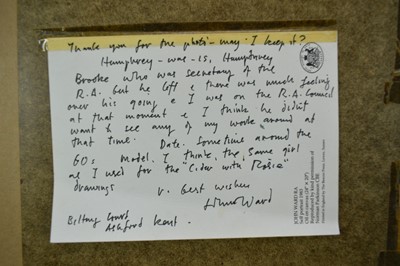 Thank you for the photo - may I keep it?
Humphrey - was - is, Humphrey
Brooke who was secretary of the
R.A. but he left & there was much feeling
over his going & I was on the R.A. Council
at that moment & I think he didn't
want to see any of my work around at
that time. Date. Sometime around the
60s. Model. I think, the same girl
as I used for the "Cider with Rosie"
drawings
v. best wishes
John Ward
Bilting Court
Ashford Kent.
JOHN WARD RA
Reproduced by kind permission of
Norman Parkinson CBE